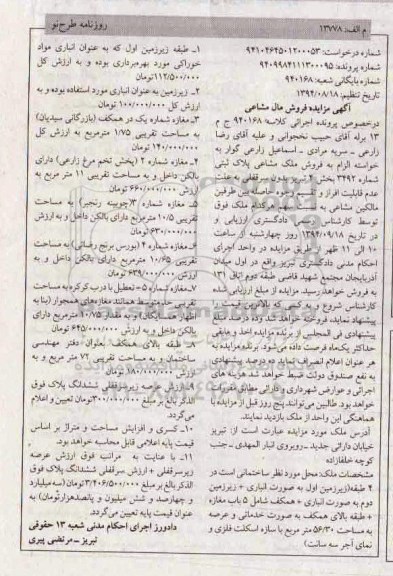 م الف: ۱۳۷۷۸
روزنامه طرح نو
شماره درخواست: ۹۴۱۰۴۶۴۵۰۱۲۰۰۰۵۳
شماره پرونده: ۹۴۰۹۹۸۴۱۱۱۳۰۰۰۹۵
شماره بایگانی شعبه: ۹۴۰۱۶۸
تاریخ تنظیم: ۱۳۹۴/۰۸/۱۸
آگهی مزایده فروش مال مشاعی
درخصوص پرونده اجرائی کلاسه ۹۴۰۱۶۸ ج م
۱۳ برله آقای حبیب نخجوانی و علیه آقای رضا
زارعی - سریه مرادی - اسماعیل زارعی گوار به
خواسته الزام به فروش ملک مشاعی پلاک ثبتی
شماره ۳۴۹۲ بخش ۴ تبریز سرقفلی به علت
عدم قابلیت افراز و تقسیم و حاصله بین طرفین
مالکین مشاعی به فروش می‌رسد ملک فوق
توسط کارشناس رسمی دادگستری ارزیابی و
در تاریخ ۱۳۹۴/۰۹/۱۸ روز چهارشنبه از ساعت
۱۰ الی ۱۱ ظهر از طریق مزایده در واحد اجرای
احکام مدنی دادگستری تبریز واقع در اول میدان
آذربایجان مجتمع شهید قاضی طبقه دوم اتاق ۱۳۱
به فروش خواهد رسید. مزایده از مبلغ ارزیابی شده
کارشناس شروع و به کسی که بالاترین قیمت را
پیشنهاد نماید، فروخته خواهد شد.
پیشنهادی فی المجلس از برنده مزایده اخذ و مابقی
حداکثر یک‌ماه فرصت داده می‌شود. برنده مزایده به
هر عنوان اعلام انصراف نماید ده درصد پیشنهادی
به نفع صندوق دولت ضبط خواهد شد. هزینه های
اجرائی و عوارض شهرداری و دارائی مطابق مقررات
خواهد بود. طالبین می‌توانند پنج روز قبل از مزایده با
هماهنگی این واحد از ملک بازدید نمایند.
آدرس ملک مورد مزایده عبارت است از: تبریز
خیابان دارائی جدید - روبروی انبار المهدی - جنب
کوچه خلفازاده
مشخصات ملک: محل مورد نظر ساختمانی است در
۴ طبقه (زیرزمین اول به صورت انباری + زیرزمین
دوم به صورت انباری + همکف شامل ۵ باب مغازه
+ طبقه بالای همکف به صورت خدماتی و عرصه
به مساحت ۵۶/۳۰ متر مربع با سازه اسکلت فلزی و
نمای آجر سه سانت)
۱- طبقه زیرزمین اول که به عنوان انباری مواد
خوراکی مورد بهره‌برداری بوده و به ارزش کل
۱۱۲/۵۰۰/۰۰۰ تومان
۲- زیرزمین به عنوان انباری مورد استفاده بوده و به
ارزش کل ۱۰۰/۰۰۰/۰۰۰ تومان
۳- مغازه شماره یک در همکف (بازرگانی سیدیان)
به مساحت تقریبی ۱/۷۵ مترمربع به ارزش کل
تومان
۴- مغازه شماره ۲ (پخش تخم مرغ زارعی) دارای
بالکن داخل و به مساحت تقریبی ۱۱ متر مربع به
ارزش ۶۶۰/۰۰۰/۰۰۰ تومان
۵- مغازه شماره ۳ (چوبینه رنجبر) به مساحت
تقریبی ۱۰/۵ مترمربع دارای بالکن داخل و به ارزش
۶۳۰/۰۰۰/۰۰۰ تومان
۶- مغازه شماره ۴ (بورس برنج رضائی) به مساحت
تقریبی ۱۰/۶۵ مترمربع دارای بالکن داخل و به
ارزش ۶۳۹/۰۰۰/۰۰۰ تومان
۷- مغازه شماره ۵ = تعطیل با درب کرکره به مساحت
تقریبی حد متوسط همانند مغازه‌های همجوار (بنا به
اظهار همسایگان) و به مقدار ۱۰/۷۵ مترمربع دارای
بالکن داخل و به ارزش ۶۴۵/۰۰۰/۰۰۰ تومان
۸- طبقه بالای همکف بعنوان دفتر مهندسی
ساختمان و به مساحت تقریبی ۷۲ متر مربع و به
ارزش ۱۸۰/۰۰۰/۰۰۰ تومان
۹- ارزش عرصه زیرسرقفلی ششدانگ پلاک فوق
الذکر بالغ بر مبلغ ۳۰۰/۰۰۰/۰۰۰ تومان تعیین و اعلام
می‌گردد.
۱۰- کسری و افزایش مساحت و متراژ بر اساس
قیمت پایه اعلامی قابل محاسبه خواهد بود.
۱۱- با عنایت به مراتب فوق ارزش عرصه
زیرسرقفلی + ارزش سرقفلی ششدانگ پلاک فوق
الذکر بالغ بر مبلغ ۳/۴۰۶/۵۰۰/۰۰۰ تومان (سه میلیارد
و چهارصد و شش میلیون و پانصدهزارتومان) به
عنوان قیمت پایه تعیین می‌گردد.
دادورز اجرای احکام مدنی شعبه ۱۳ حقوقی
تبریز - مرتضی پیری